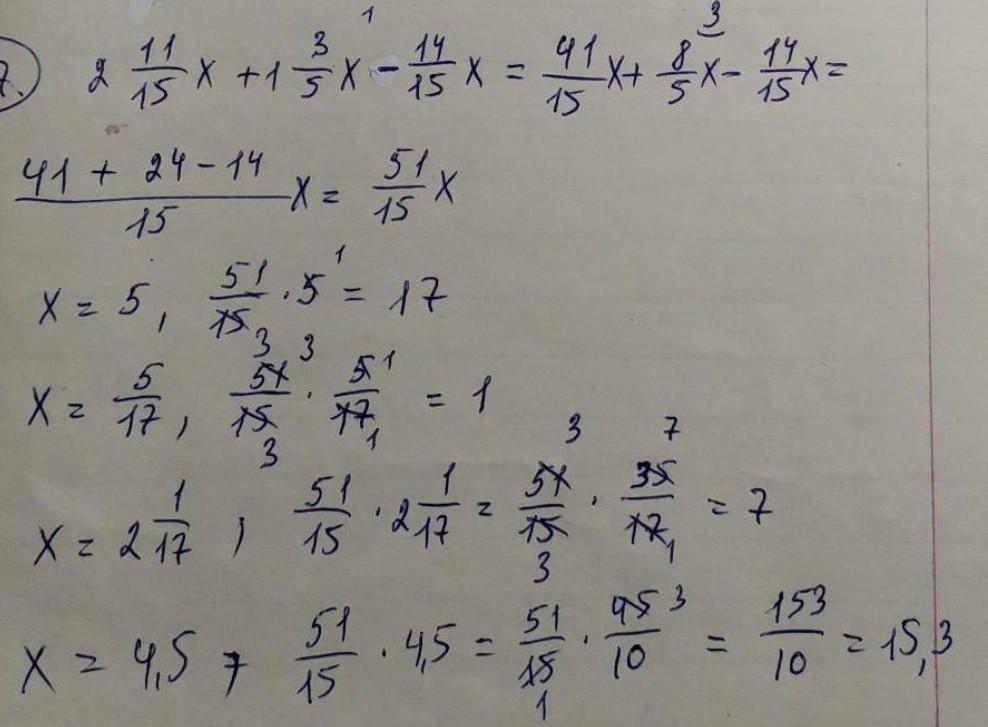 7. 2 11/15 x + 1 3/5 x ¹ - 14/15 x = 41/15 x + 8/5 ³ x - 14/15 x =
(41 + 24 - 14)/15 x = 51/15 x
x = 5, 51/15 3 · 5 ¹ = 17
x = 5/17, 51 ³/15 3 · 5 ¹/17 1 = 1
x = 2 1/17, 51/15 · 2 1/17 = 51 ³/15 3 · 35 ⁷/17 1 = 7
x = 4,5, 51/15 · 4,5 = 51/15 1 · 45 ³/10 = 153/10 = 15,3